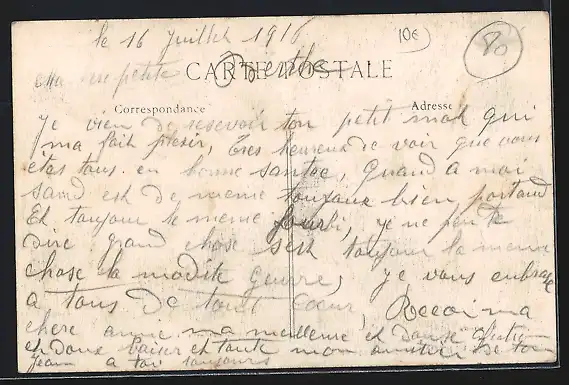 le 16 Juillet 1916
10€
80
Ma petite Berthe
CARTE POSTALE
Correspondance
Adresse
Je vien de resevoir ton petit mot qui
ma fait plesir, tres heureux de voir que vous
êtes tous en bonne santee, Quand a moi
santé est de meme toujour bien portand
Et toujour le meme fourbi, je ne peu te
dire grand chose sest toujour la meme
chose la modite Geurre, je vous enbrase
a tous de tout Coeur, Recoi ma
chere amie ma meilleure et douse
et doux baiser et toute mon amitier de ton
Jean a toi toujours